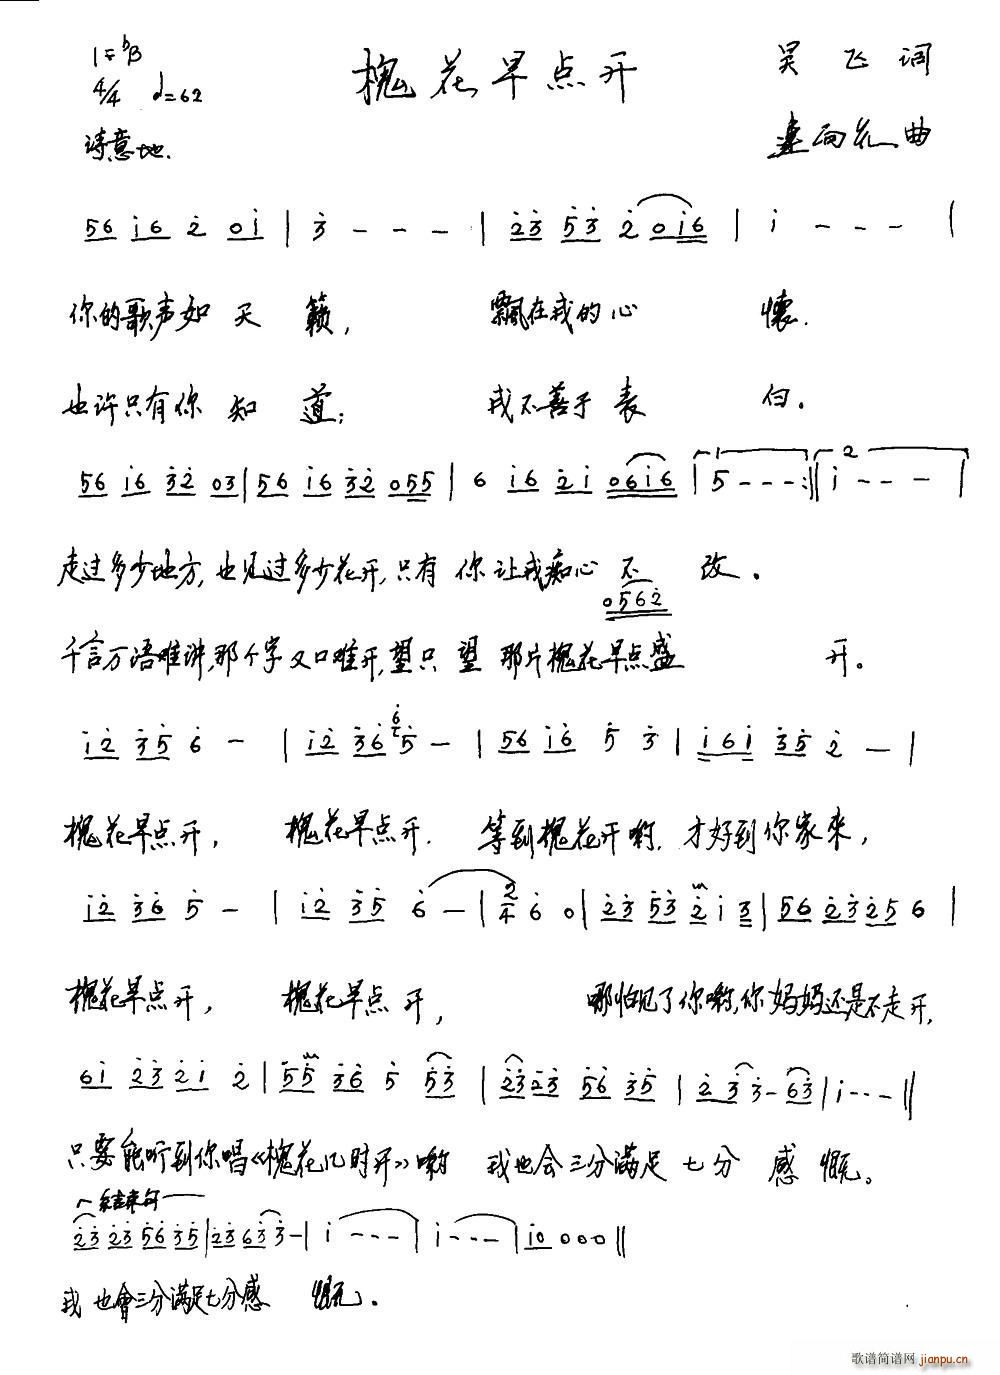 1=ᵇB
槐花早点开
吴飞词
4/4 ♩=62
诗意地.
曲
56 i6 2 0i | 3 - - - | 23 53 2 0i6 | i - - - |
你的歌声如天籁, 飘在我的心怀.
也许只有你知道; 我不善于表白。
56 i6 32 03 | 56 i6 32 055 | 6 i6 2i 06i6 | 1 5 - - - :‖ 2 i - - - |
走过多少地方, 也见过多少花开, 只有你让我痴心不改。
0562
千言万语难讲, 那个字又口难开, 望只望那片槐花早点盛开。
i2 35 6 - | i2 36 6 5 - | 56 i6 5 3 | i6i 35 2 - |
槐花早点开, 槐花早点开. 等到槐花开哟. 才好到你家来,
i2 36 5 - | i2 35 6 - | 2/4 6 0 | 23 53 2 i 3 | 56 23 25 6 |
槐花早点开, 槐花早点开, 哪怕见了你哟, 你妈妈还是不走开,
6i 23 2i 2 | 55 36 5 53 | 23 23 56 35 | 2 3 3 - 63 | i - - - ‖
只要能听到你唱《槐花几时开》哟 我也会三分满足七分感慨。
结束句
23 23 56 35 | 23 63 3 - | i - - - | i - - - | i0 0 0 0 ‖
我也會三分满足七分感慨。
歌谱简谱网
jianpu.cn